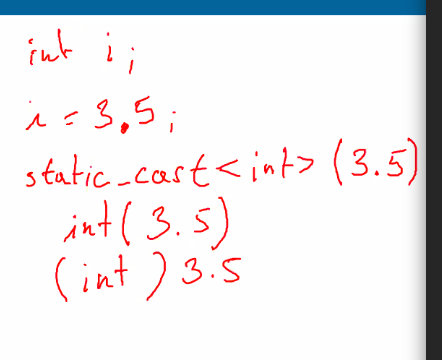 int i;
i = 3.5;
static_cast<int>(3.5)
int(3.5)
(int)3.5